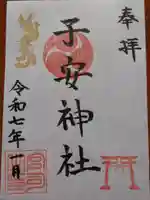 奉拝
子安神社
令和七年十一月